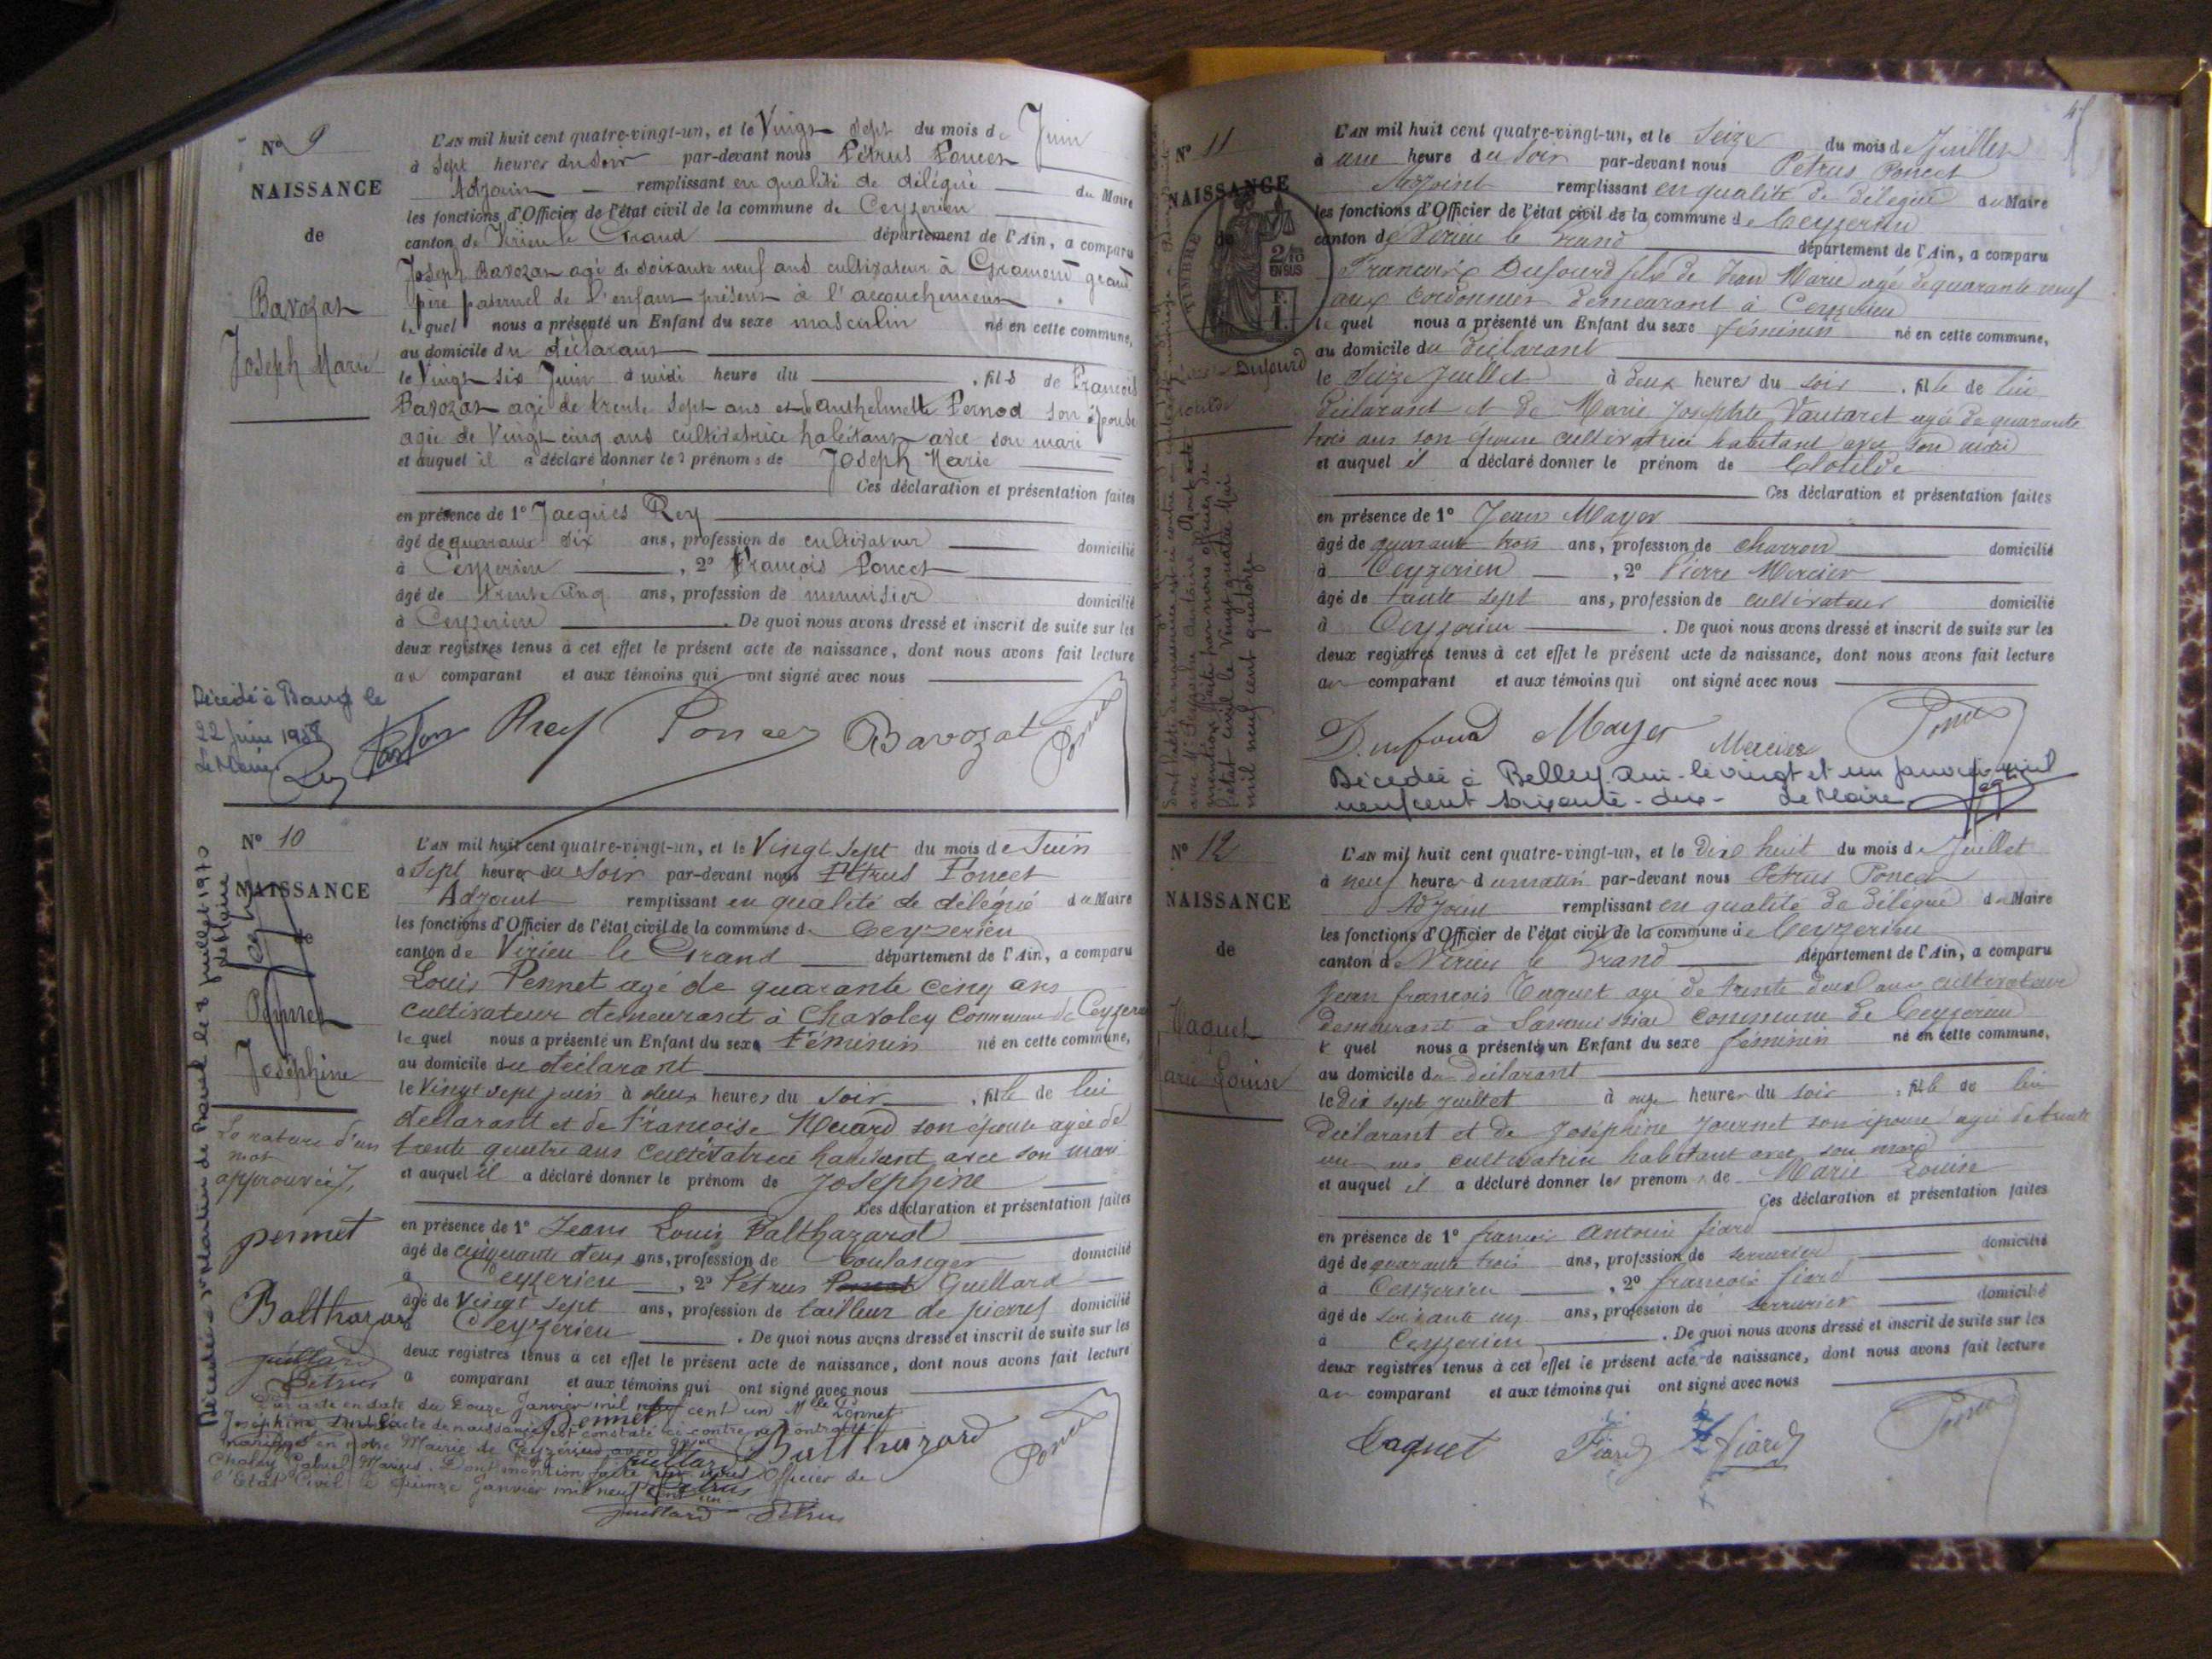 Nº 9
NAISSANCE
de
Bavozat
Joseph Marie
L'AN mil huit cent quatre-vingt-un, et le Vingt Sept du mois de Juin
à Sept heures du Soir par-devant nous Pétrus Poncet
Adjoint remplissant en qualité de délégué du Maire
les fonctions d'Officier de l'état civil de la commune de Ceyzerieu
canton de Virieu le Grand département de l'Ain, a comparu
Joseph Bavozat agé de soixante neuf ans cultivateur à Gramend grand
père paternel de l'enfant présent à l'accouchement
lequel nous a présenté un Enfant du sexe masculin né en cette commune,
au domicile du déclarant
le Vingt six Juin à midi heure du , fils de François
Bavozat agé de trente sept ans et d'anthelmette Pernod son épouse
agée de Vingt cinq ans cultivatrice habitant avec son mari
et auquel il a déclaré donner les prénoms de Joseph Marie
Ces déclaration et présentation faites
en présence de 1º Jacques Rey
âgé de quarante six ans, profession de cultivateur domicilié
à Ceyzerieu , 2º François Poncet
âgé de trente cinq ans, profession de menuisier domicilié
à Ceyzerieu . De quoi nous avons dressé et inscrit de suite sur les
deux registres tenus à cet effet le présent acte de naissance, dont nous avons fait lecture
au comparant et aux témoins qui ont signé avec nous
Décédé à
22 Juin
Le Maire
Rey Poncet Bavozat Poncet
Nº 10
NAISSANCE
de
Pennet
Joséphine
L'AN mil huit cent quatre-vingt-un, et le Vingt Sept du mois de Juin
à Sept heures du Soir par-devant nous Pétrus Poncet
Adjoint remplissant en qualité de délégué du Maire
les fonctions d'Officier de l'état civil de la commune de Ceyzerieu
canton de Virieu le Grand département de l'Ain, a comparu
Louis Pennet agé de quarante cinq ans
cultivateur demeurant à Chavoley Commune de Ceyzerieu
lequel nous a présenté un Enfant du sexe Féminin né en cette commune,
au domicile du déclarant
le Vingt sept juin à deux heures du Soir , fille de lui
déclarant et de Françoise son épouse agée de
trente quatre ans Cultivatrice habitant avec son mari
et auquel il a déclaré donner le prénom de Joséphine
Ces déclaration et présentation faites
en présence de 1º Jean Louis Balthazard
âgé de cinquante deux ans, profession de boulanger domicilié
à Ceyzerieu , 2º Pétrus Poncet Guillard
âgé de Vingt sept ans, profession de tailleur de pierres domicilié
à Ceyzérieu . De quoi nous avons dressé et inscrit de suite sur les
deux registres tenus à cet effet le présent acte de naissance, dont nous avons fait lecture
a comparant et aux témoins qui ont signé avec nous
La rature d'un
mot
approuvée
pennet
Balthazard
juillard
Pétrus
Décédée le 2 juillet 1970
Le Maire
Par acte en date du Douze Janvier mil neuf cent un Mlle Pennet
Joséphine dont l'acte de naissance est constaté ci-contre a contracté
mariage en notre Mairie de Ceyzérieu avec
Gabriel Marius. Dont mention faite par nous Officier de
l'Etat Civil le Quinze Janvier mil neuf cent un
Pennet Balthazard Poncet
juillard Pétrus
Nº 11
NAISSANCE
de
TIMBRE
2/10
EN SUS
Dufourd
Clotilde
L'AN mil huit cent quatre-vingt-un, et le Seize du mois de Juillet
à une heure du Soir par-devant nous Pétrus Poncet
Adjoint remplissant en qualité de délégué du Maire
les fonctions d'Officier de l'état civil de la commune de Ceyzerieu
canton de Virieu le Grand département de l'Ain, a comparu
François Dufourd fils de Jean Marie agé de quarante neuf
ans cordonnier demeurant à Ceyzerieu
lequel nous a présenté un Enfant du sexe féminin né en cette commune,
au domicile du déclarant
le Seize Juillet à deux heures du soir , fille de lui
déclarant et de Marie Josephte Vautaret agée de quarante
trois ans son épouse cultivatrice habitant avec son mari
et auquel il a déclaré donner le prénom de Clotilde
Ces déclaration et présentation faites
en présence de 1º Jean Mayer
âgé de quarante trois ans, profession de charron domicilié
à Ceyzerieu , 2º Pierre Mercier
âgé de trente sept ans, profession de cultivateur domicilié
à Ceyzerieu . De quoi nous avons dressé et inscrit de suite sur les
deux registres tenus à cet effet le présent acte de naissance, dont nous avons fait lecture
au comparant et aux témoins qui ont signé avec nous
Dufourd Mayer Mercier Poncet
Décédée à Belley Ain le vingt et un janvier mil
neuf cent soixante-dix- Le Maire
Nº 12
NAISSANCE
de
Caquet
Marie Louise
L'AN mil huit cent quatre-vingt-un, et le Dix huit du mois de Juillet
à neuf heures du matin par-devant nous Pétrus Poncet
Adjoint remplissant en qualité de délégué du Maire
les fonctions d'Officier de l'état civil de la commune de Ceyzerieu
canton de Virieu le Grand département de l'Ain, a comparu
Jean françois Caquet agé de trente deux ans cultivateur
demeurant à commune de Ceyzerieu
lequel nous a présenté un Enfant du sexe féminin né en cette commune,
au domicile du déclarant
le dix sept juillet à onze heures du soir , fille de lui
déclarant et de Joséphine Journet son épouse agée de trente
un ans cultivatrice habitant avec son mari
et auquel il a déclaré donner les prénoms de Marie Louise
Ces déclaration et présentation faites
en présence de 1º françois Antoine fiard
âgé de quarante trois ans, profession de serrurier domicilié
à Ceyzerieu , 2º françois fiard
âgé de soixante un ans, profession de serrurier domicilié
à Ceyzerieu . De quoi nous avons dressé et inscrit de suite sur les
deux registres tenus à cet effet le présent acte de naissance, dont nous avons fait lecture
au comparant et aux témoins qui ont signé avec nous
Caquet Fiard fiard Poncet